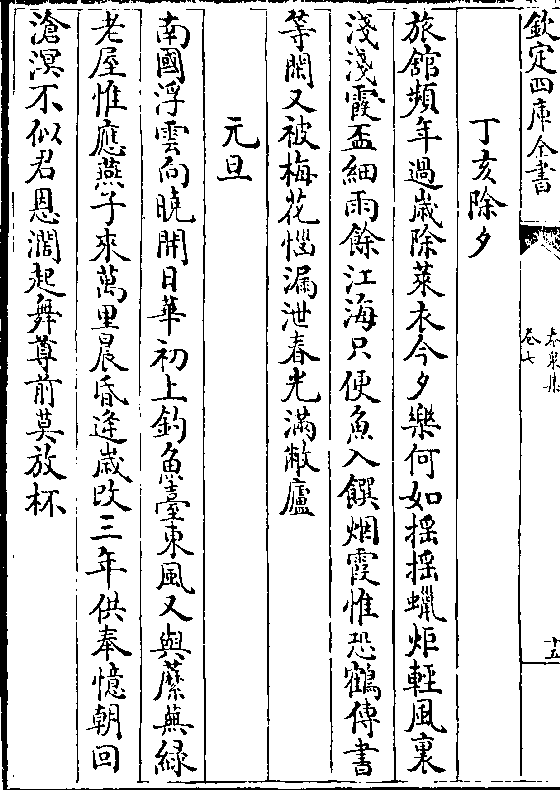 欽定四庫全書
泰泉集
卷七
十五
丁亥除夕
旅舘頻年過歲除萊衣今夕樂何如揺揺蠟炬輕風裏
淺淺霞盃細雨餘江海只便魚入饌烟霞惟恐鶴傳書
等閒又被梅花惱漏泄春光滿敝廬
元旦
南國浮雲向曉開日華初上釣魚臺東風又與蘼蕪緑
老屋惟應燕子來萬里晨昏逢歲改三年供奉憶朝回
滄溟不似君恩濶起舞尊前莫放杯